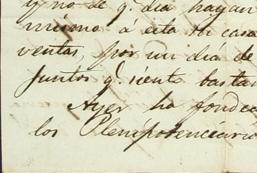 y no de q.e dia hayan
mismo á esta mi casa
ventas, por un dia de
juntos q.e siente bastan
Ayer ha fondea
los Plenipotenciario